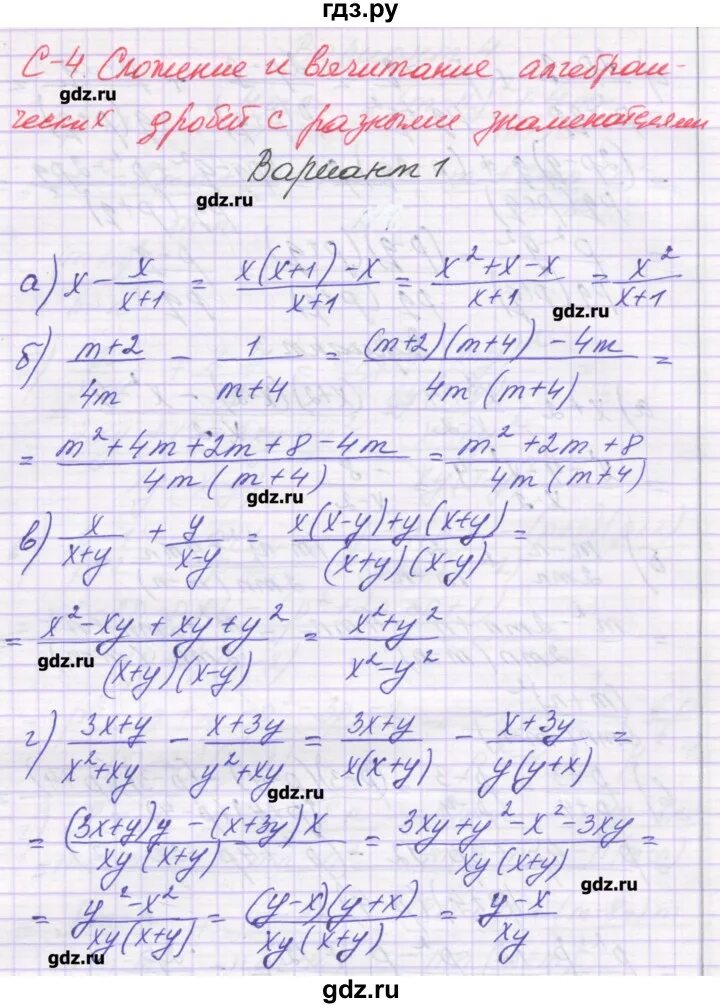 гдз.ру
С-4. Сложение и вычитание алгебраи-
gdz.ru
ческих дробей с разными знаменателями
Вариант 1
gdz.ru
а) x - x/(x+1) = (x(x+1)-x)/(x+1) = (x²+x-x)/(x+1) = x²/(x+1)
gdz.ru
б) (m+2)/4m - 1/(m+4) = ((m+2)(m+4)-4m)/(4m(m+4)) =
= (m²+4m+2m+8-4m)/(4m(m+4)) = (m²+2m+8)/(4m(m+4))
gdz.ru
в) x/(x+y) + y/(x-y) = (x(x-y)+y(x+y))/((x+y)(x-y)) =
= (x²-xy+xy+y²)/((x+y)(x-y)) = (x²+y²)/(x²-y²)
gdz.ru
г) (3x+y)/(x²+xy) - (x+3y)/(y²+xy) = (3x+y)/(x(x+y)) - (x+3y)/(y(y+x)) =
gdz.ru
= ((3x+y)y-(x+3y)x)/(xy(x+y)) = (3xy+y²-x²-3xy)/(xy(x+y)) =
gdz.ru
= (y²-x²)/(xy(x+y)) = ((y-x)(y+x))/(xy(x+y)) = (y-x)/xy
gdz.ru
gdz.ru